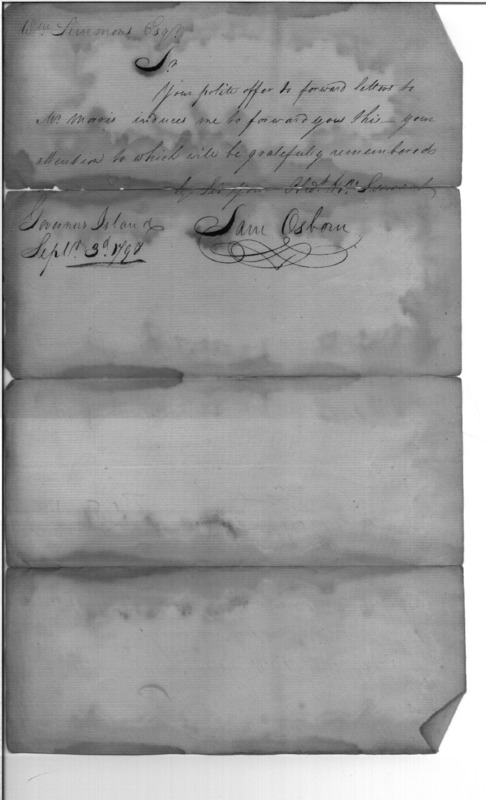 Wm Simmons Esqr
Sr
Your polite offer to forward letters to
Mr Morris induces me to forward you this — your
attention to which will be gratefully remembered
by Sir your Obdt Servant
Governors Island
Septr 3d 1798
Sam Osborn